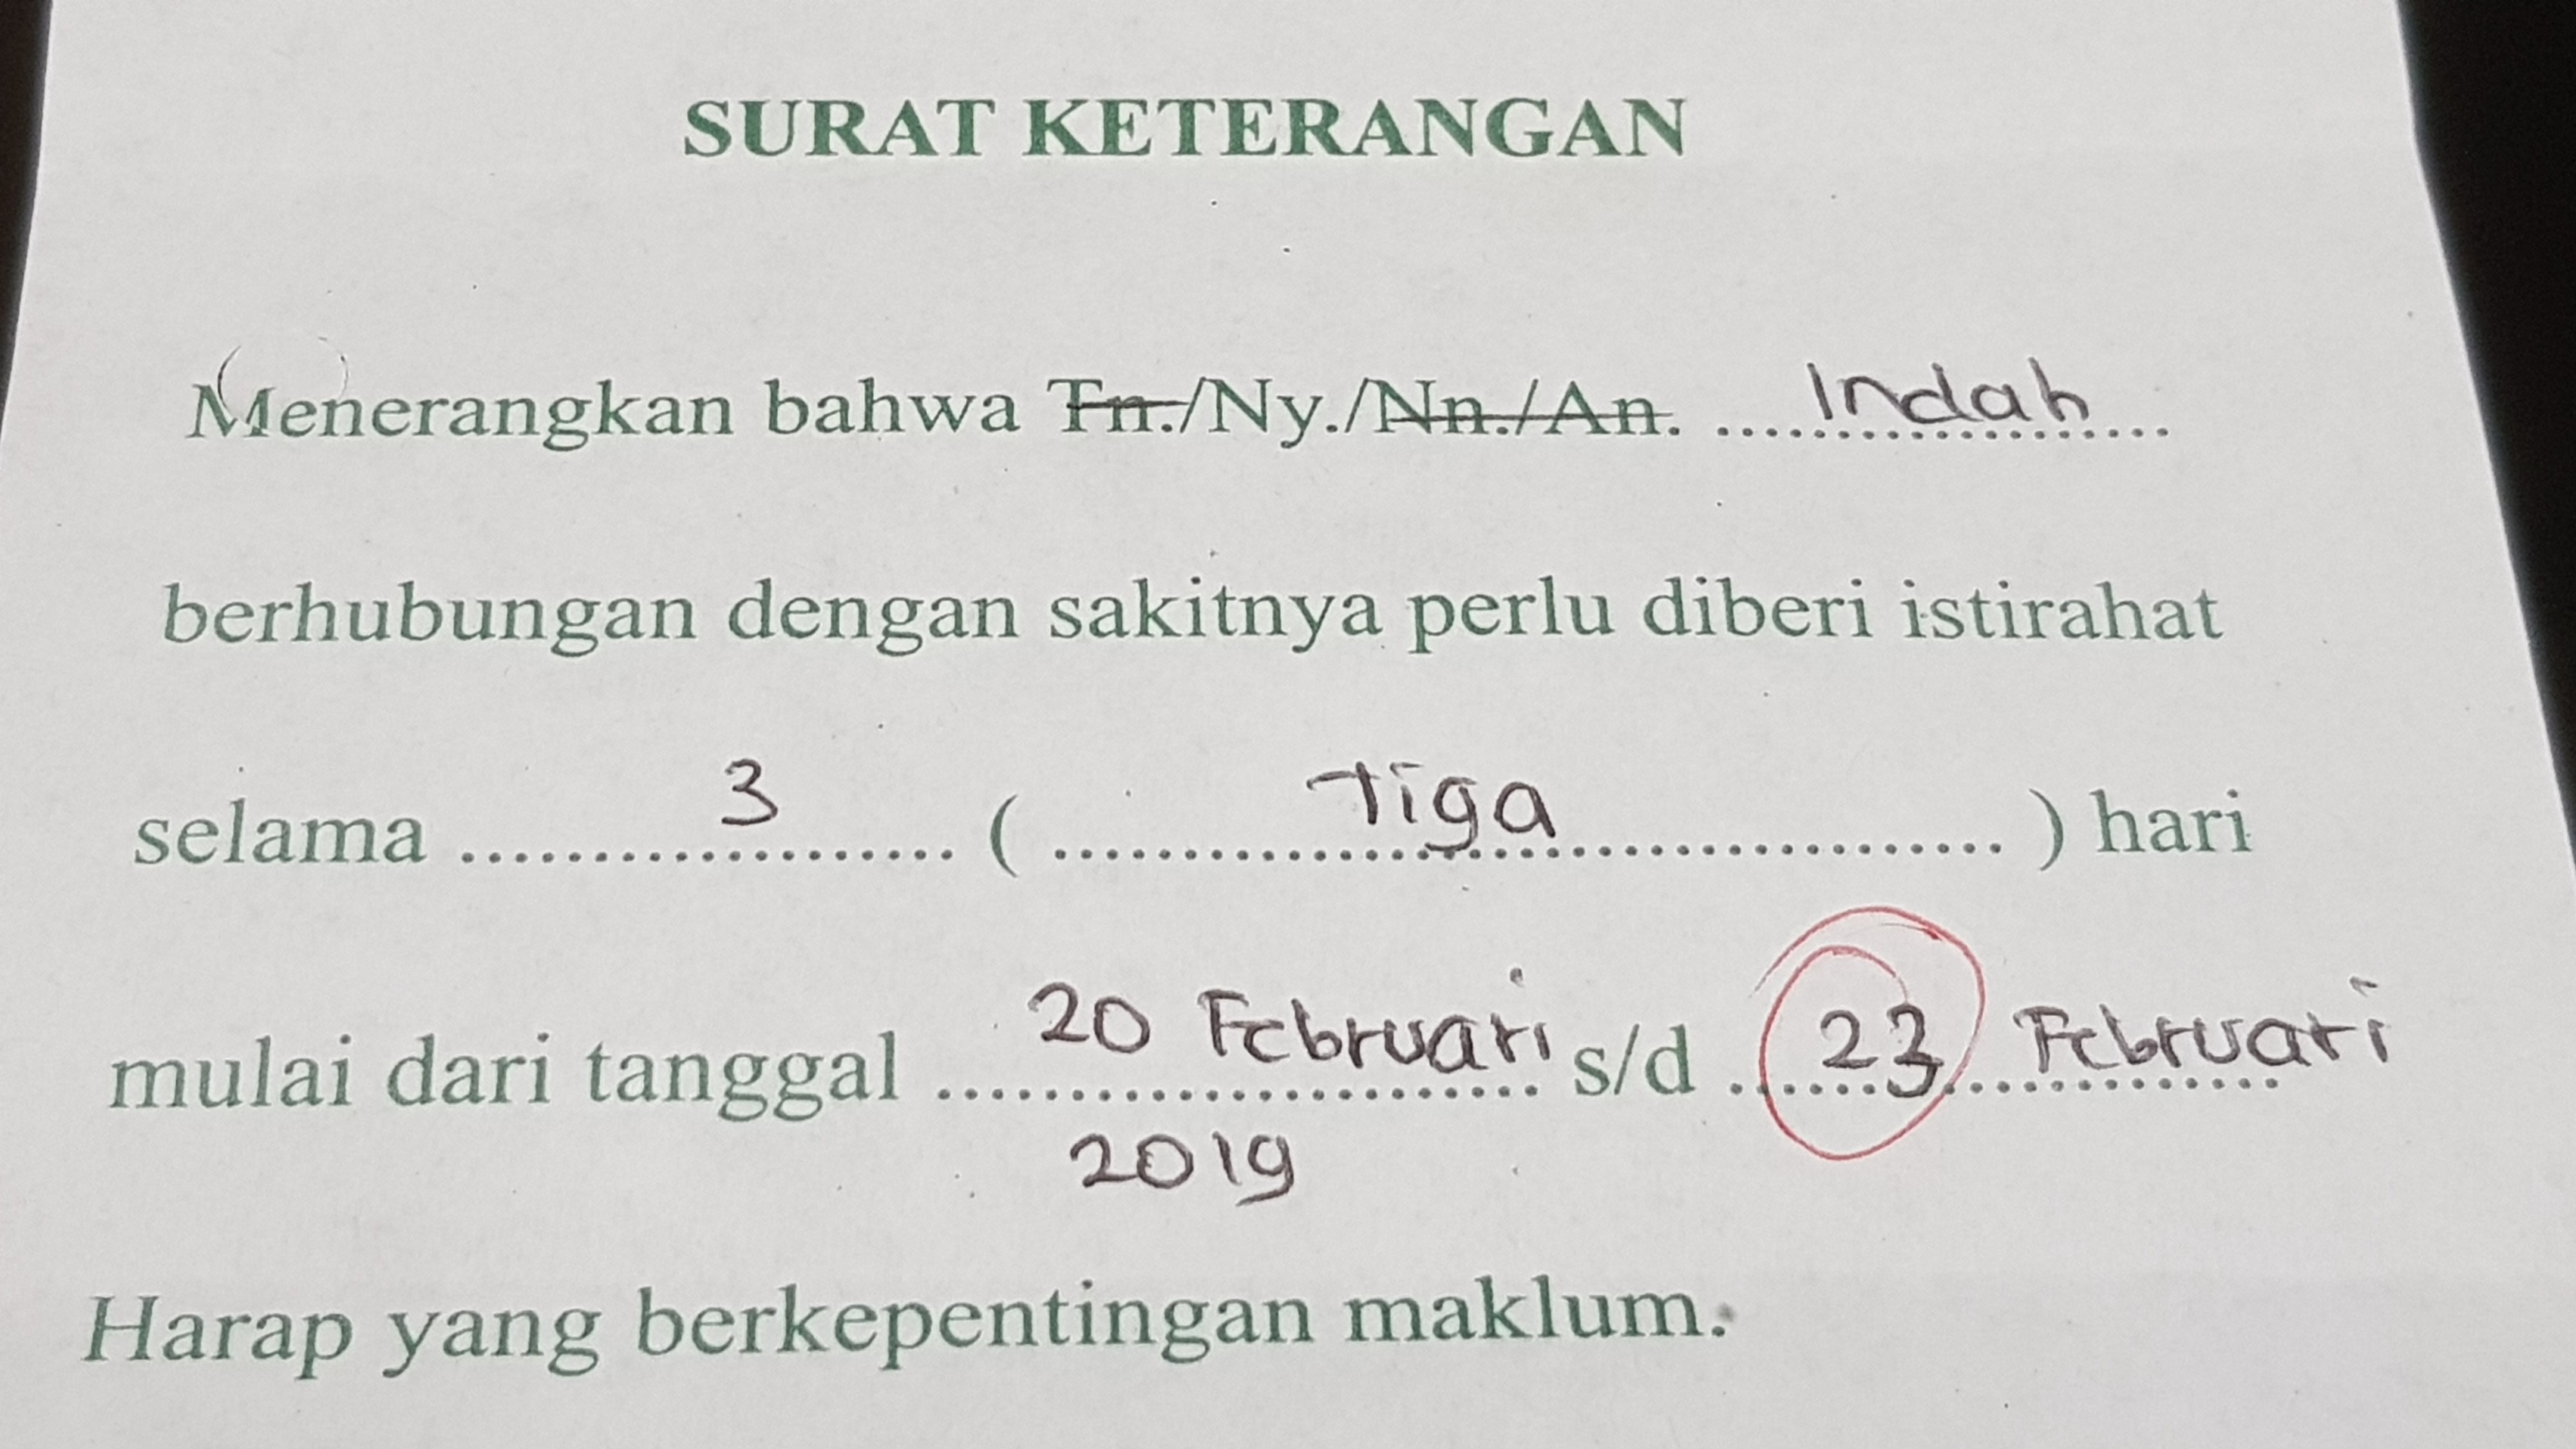 SURAT KETERANGAN
Menerangkan bahwa Tn./Ny./Nn./An. .....Indah.....
berhubungan dengan sakitnya perlu diberi istirahat
selama .......3....... ( ........Tiga........ ) hari
mulai dari tanggal ....20 Februari.... s/d ....23 Februari....
2019
Harap yang berkepentingan maklum.